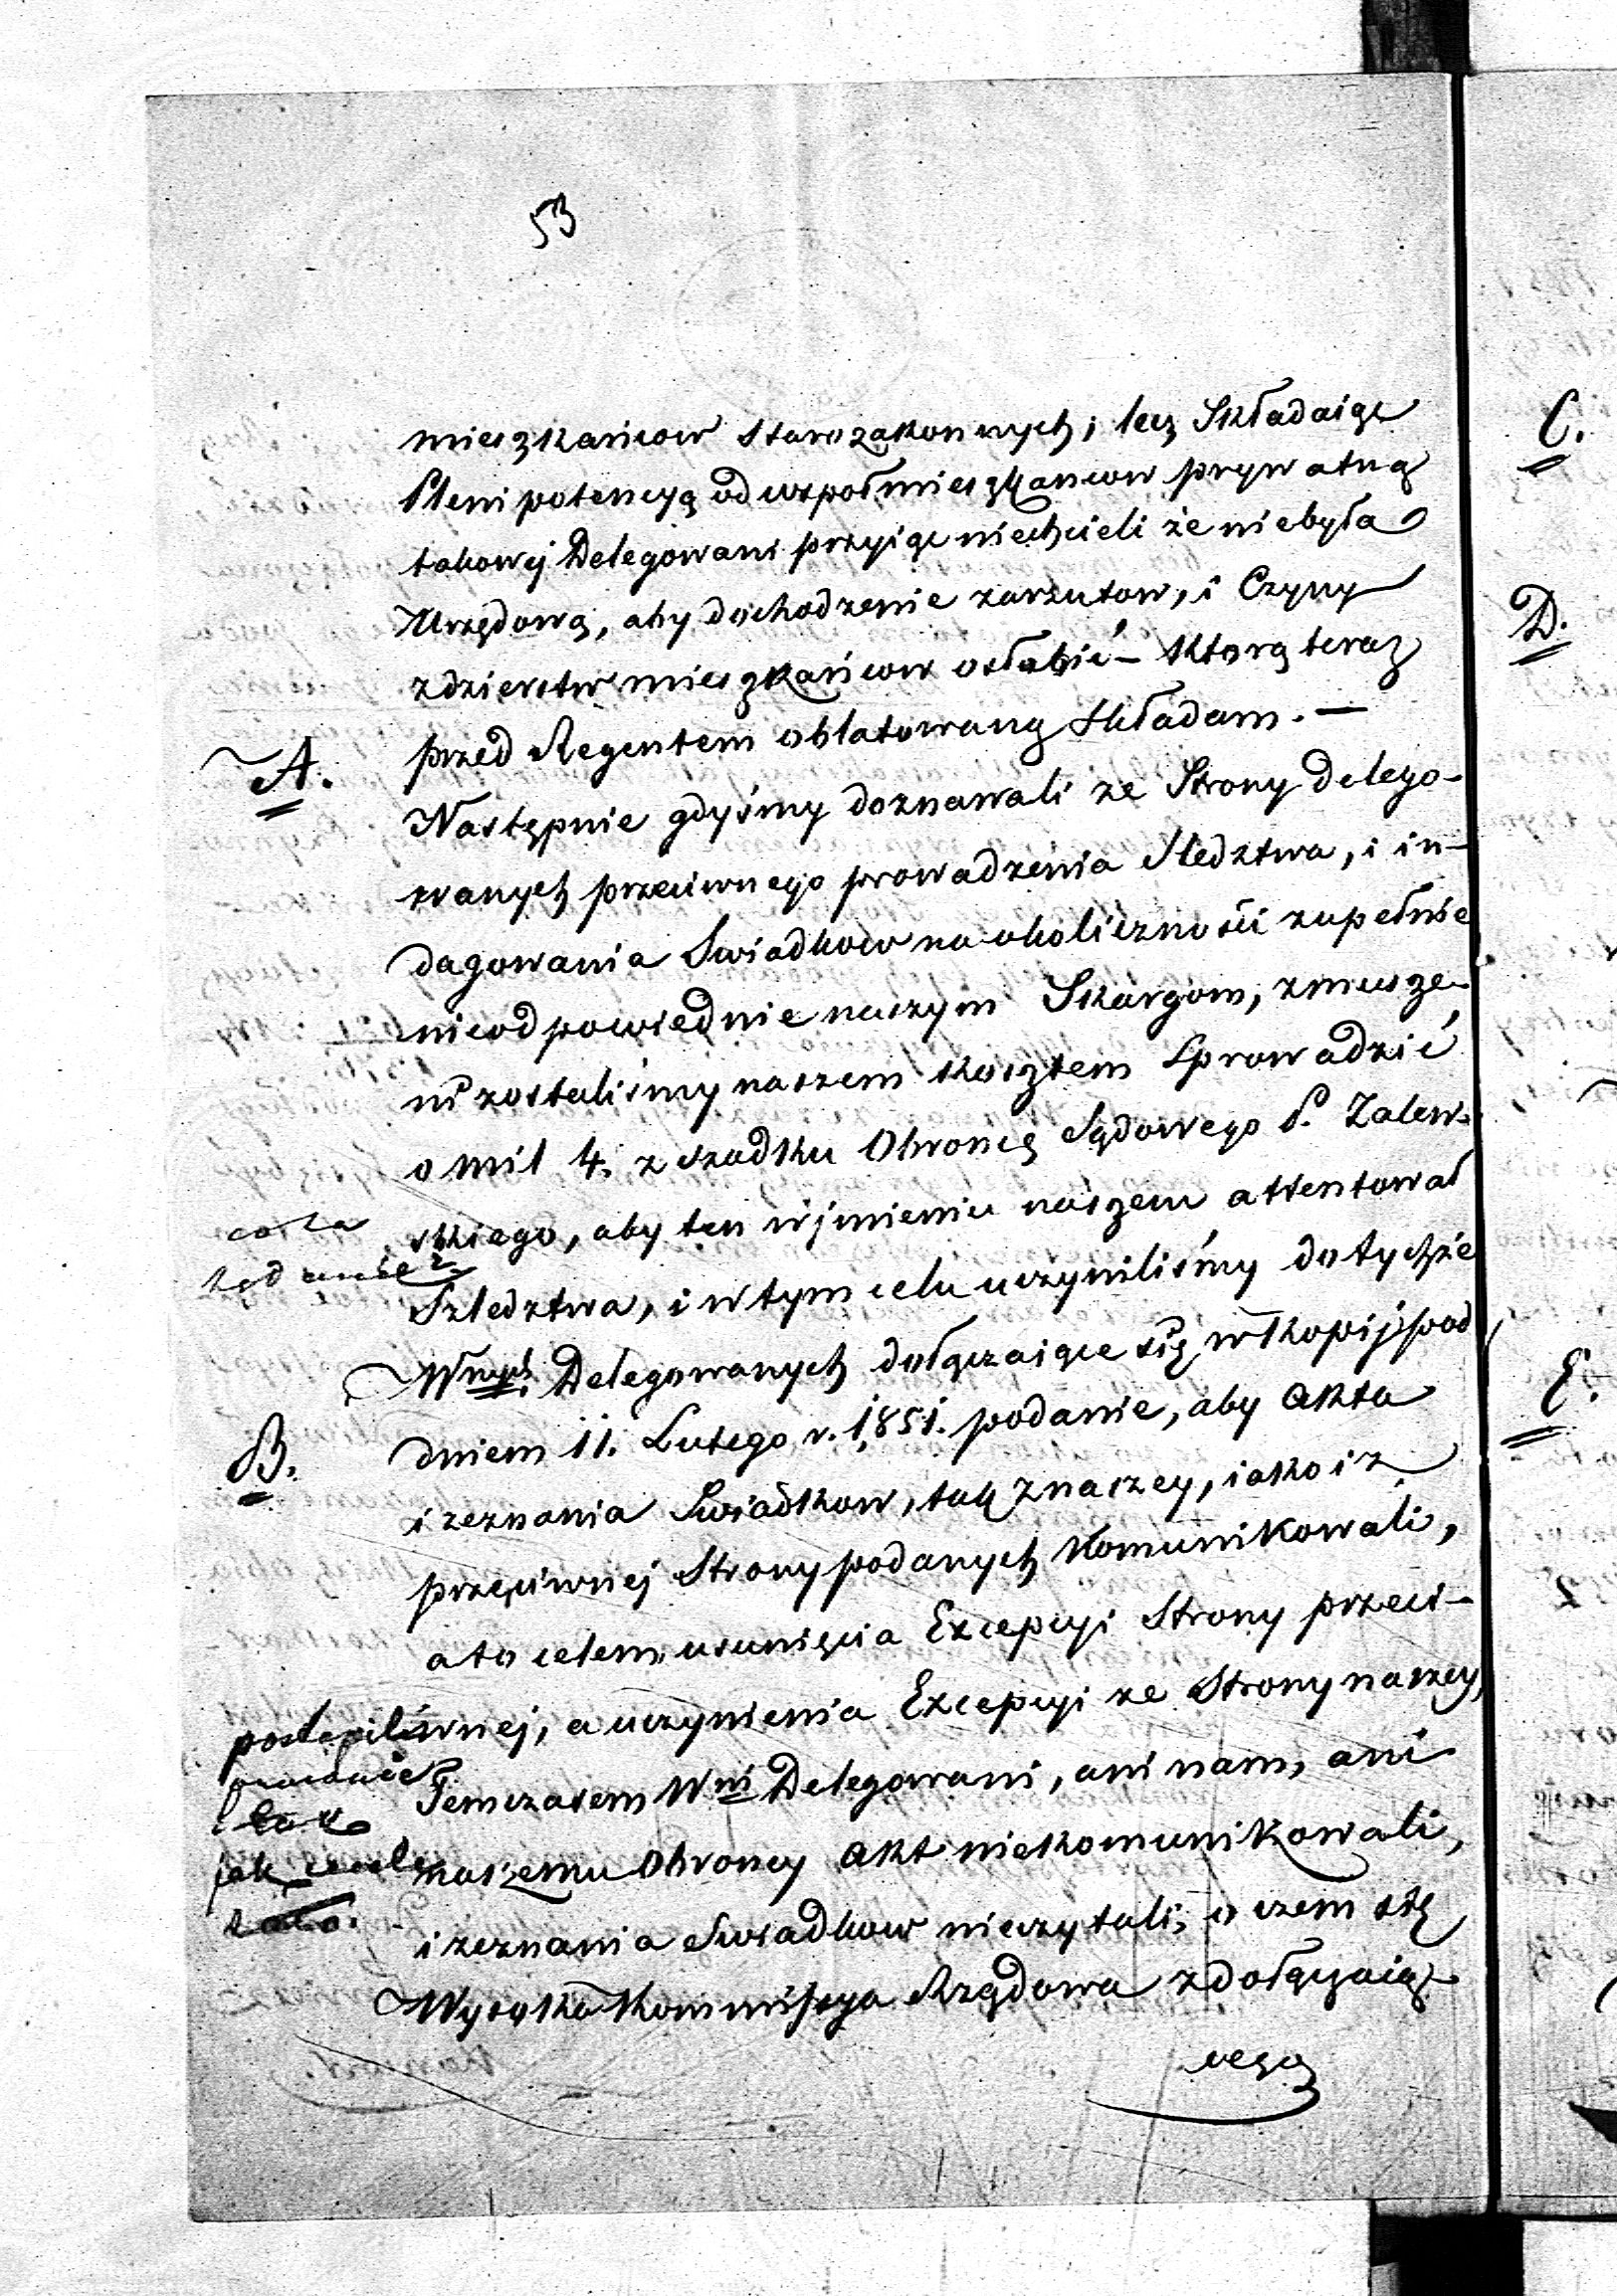 53
mieszkańcow Starozakonnych; lecz Składaiąc
Plenipotencyą od wspołmieszkancow prywatną
takowej Delegowani przyiąc niechcieli że niebyła
Urzędową, aby dochodzenie zarzutow, i Czyny
zdzierstw mieszkańcow osłabić – Ktorą teraz
przed Regentem oblatowaną Składam. —
A.
Następnie gdyśmy doznawali ze Strony Delego-
wanych przeciwnego prowadzenia Sledztwa, i in-
dagowania Swiadkow na okoliczności zupełnie
nieodpowiednie naszym Skargom, zmusze-
ni zostaliśmy naszem kosztem Sprowadzić
o mil 4. z Szadku Obroncę Sądowego P. Zalew-
skiego, aby ten w jmieniu naszem attentował
Szledztwa, i w tym celu uczyniliśmy do tychże
Wnych Delegowanych dołączaiące się w kopij pod
B.
dniem 11. Lutego r. 1851. podanie, aby Akta
i zeznania Swiadkow, tak z naszey, iako i z
przeciwnej Strony podanych Komunikowali,
a to celem usunięcia Excepcyi Strony przeci-
wnej, a uczynienia Excepcyi ze Strony naszey,
Temczasem Wni Delegowani, ani nam, ani
naszemu Obroncy Akt niekomunikowali,
i zeznania Swiadkow nieczytali, o czem się
Wysoka Kommissya Rządowa z dołączaią-
cego
jak
C.
D.
E.